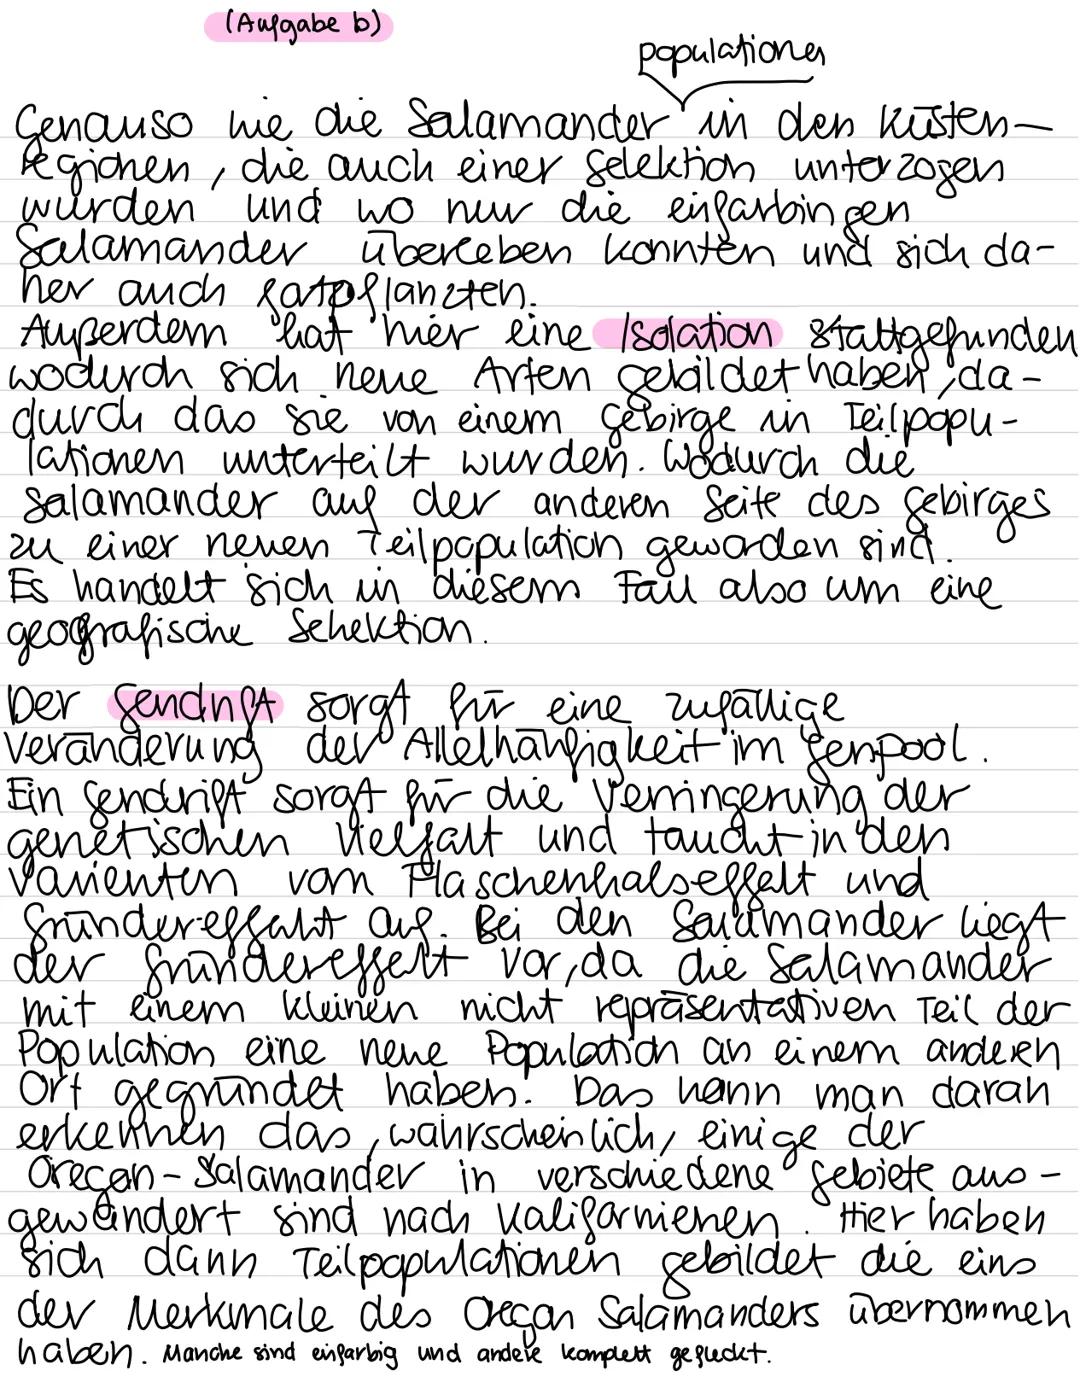 (Aufgabe b)
populationen
Genauso wie die Salamander in den Küsten-
regionen, die auch einer Selektion unterzogen
wurden und wo nur die einfarbingen
Salamander überleben konnten und sich da-
her auch fatpflanzten.
Außerdem hat hier eine Isolation stattgefunden
wodurch sich neue Arten gebildet haben, da-
durch das sie von einem Gebirge in Teilpopu-
lationen unterteilt wurden. Wodurch die
Salamander auf der anderen Seite des Gebirges
zu einer neuen Teilpopulation geworden sind.
Es handelt sich in diesem Fall also um eine
geografische Sehektion.
Der Gendrift sorgt für eine zufällige
Veränderung der Allelhäufigkeit im Genpool.
Ein Gendrift sorgt für die Verringerung der
genetischen Vielfalt und taucht in den
Varienten vom Flaschenhalseffekt und
Gründereffekt auf. Bei den Salamander liegt
der Gründereffekt vor, da die Salamander
mit einem kleinen nicht repräsentativen Teil der
Population eine neue Population an einem anderen
Ort gegründet haben. Das kann man daran
erkennen das, wahrscheinlich, einige der
Oregon-Salamander in verschiedene Gebiete aus-
gewandert sind nach Kalifornienen. Hier haben
sich dann Teilpopulationen gebildet die eins
der Merkmale des Oregon Salamanders übernommen
haben. Manche sind einfarbig und andere komplett gefleckt.